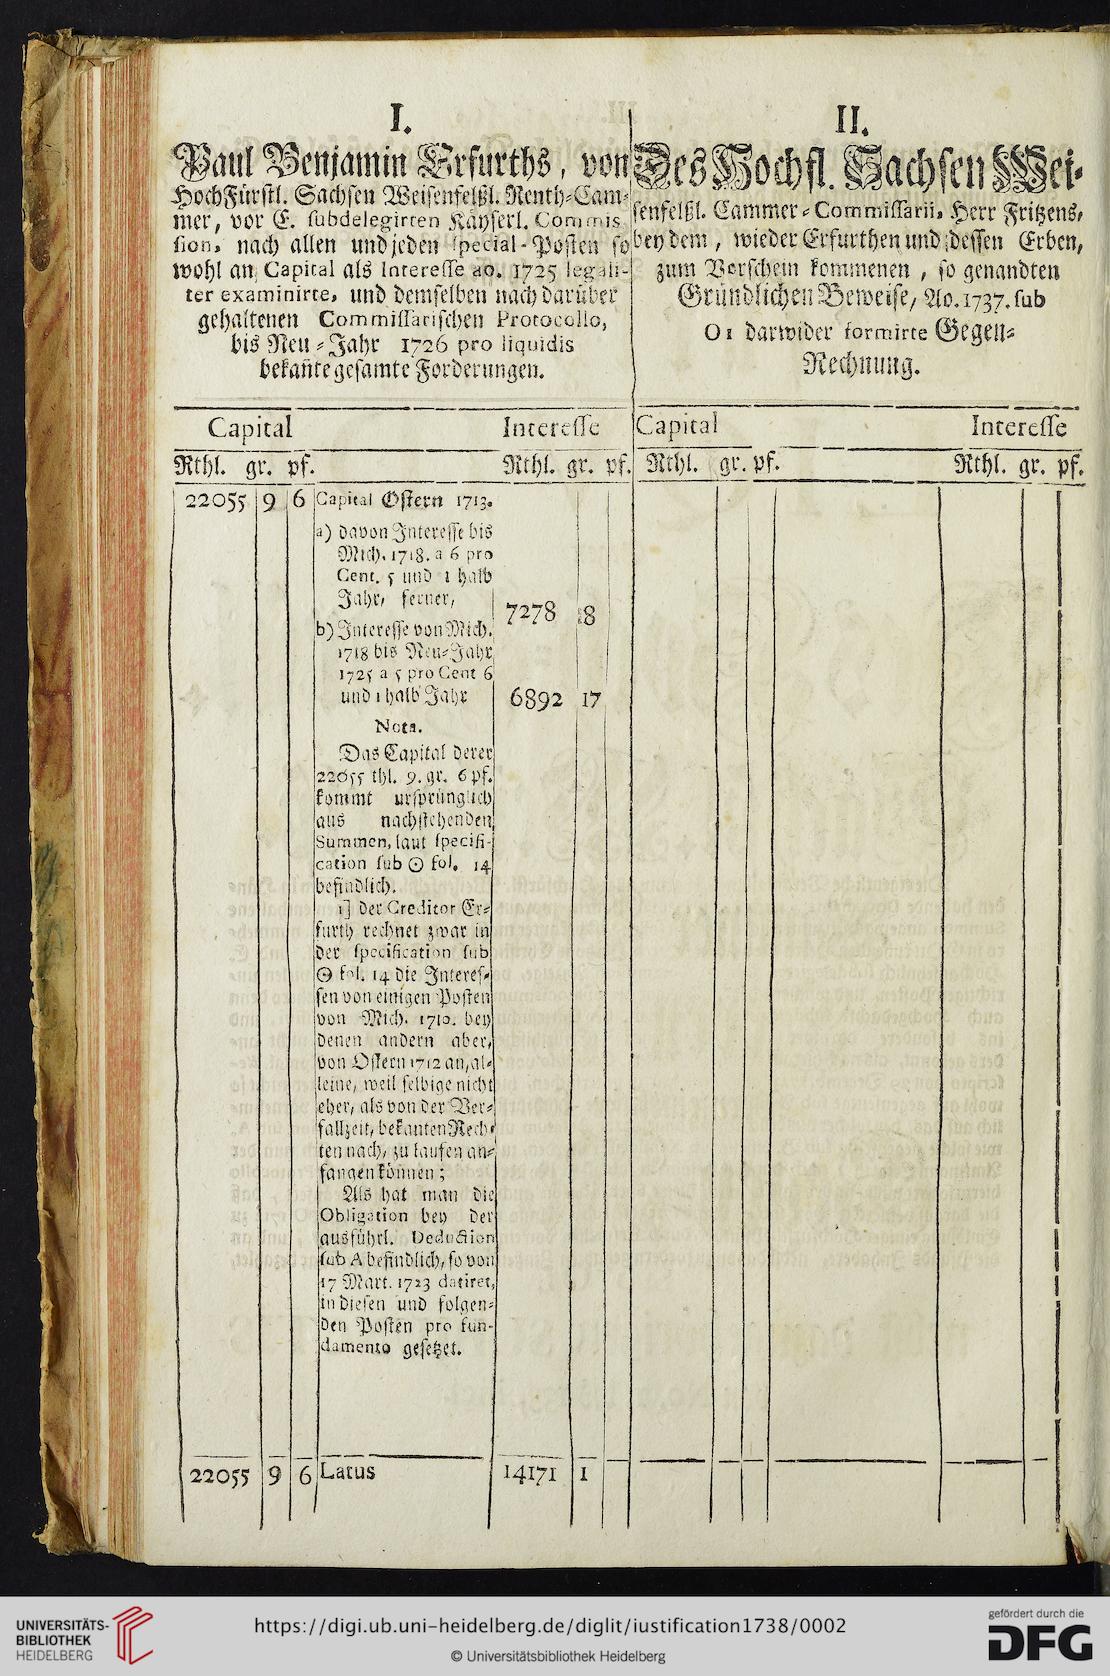 I.
Paul Benjamin Erfurths, von
HochFürstl. Sachsen Weisenfelßl. Renth-Cam-
mer, vor E. subdelegirten Käyserl. Commis
sion, nach allen und jeden special-Posten so
wohl an Capital als Interesse ao. 1725 legali-
ter examinirte, und demselben nach darüber
gehaltenen Commissarischen Protocollo,
bis Neu-Jahr 1726 pro liquidis
bekañte gesamte Forderungen.
II.
Des Hochfl. Sachsen Wei-
senfelßl. Cammer-Commissarii, Herr Fritzens,
bey dem, wieder Erfurthen und dessen Erben,
zum Vorschein kommenen, so genandten
Gründlichen Beweise, Ao. 1737. sub
O 1 darwider formirte Gegen-
Rechnung.
Capital Interesse Capital Interesse
Rthl. gr. pf. Rthl. gr. pf. Rthl. gr. pf. Rthl. gr. pf.
22055 9 6 Capital Ostern 1713.
a) davon Interesse bis
Mich. 1718. a 6 pro
Cent. 5 und 1 halb
Jahr, ferner, 7278 8
b) Interesse von Mich.
1718 bis Neu-Jahr
1725 a 5 pro Cent 6
und 1 halb Jahr 6892 17
Nota.
Das Capital derer
22055 thl. 9. gr. 6 pf.
kommt ursprünglich
aus nachstehenden
Summen, laut specifi-
cation sub ⊙ fol. 14
befindlich.
1] der Creditor Er-
furth rechnet zwar in
der specification sub
⊙ fol. 14 die Interes-
sen von einigen Posten
von Mich. 1710. bey
denen andern aber,
von Ostern 1712 an, al-
leine, weil selbige nicht
eher, als von der Ver-
fallzeit, bekanten Rech-
ten nach, zu laufen an-
fangen können;
Als hat man die
Obligation bey der
ausführl. Deduction
sub A befindlich, so von
17 Mart. 1723 datiret,
in diesen und folgen-
den Posten pro fun-
damento gesetzet.
22055 9 6 Latus 14171 1
UNIVERSITÄTS-
BIBLIOTHEK
HEIDELBERG
https://digi.ub.uni-heidelberg.de/diglit/iustification1738/0002
© Universitätsbibliothek Heidelberg
gefördert durch die
DFG